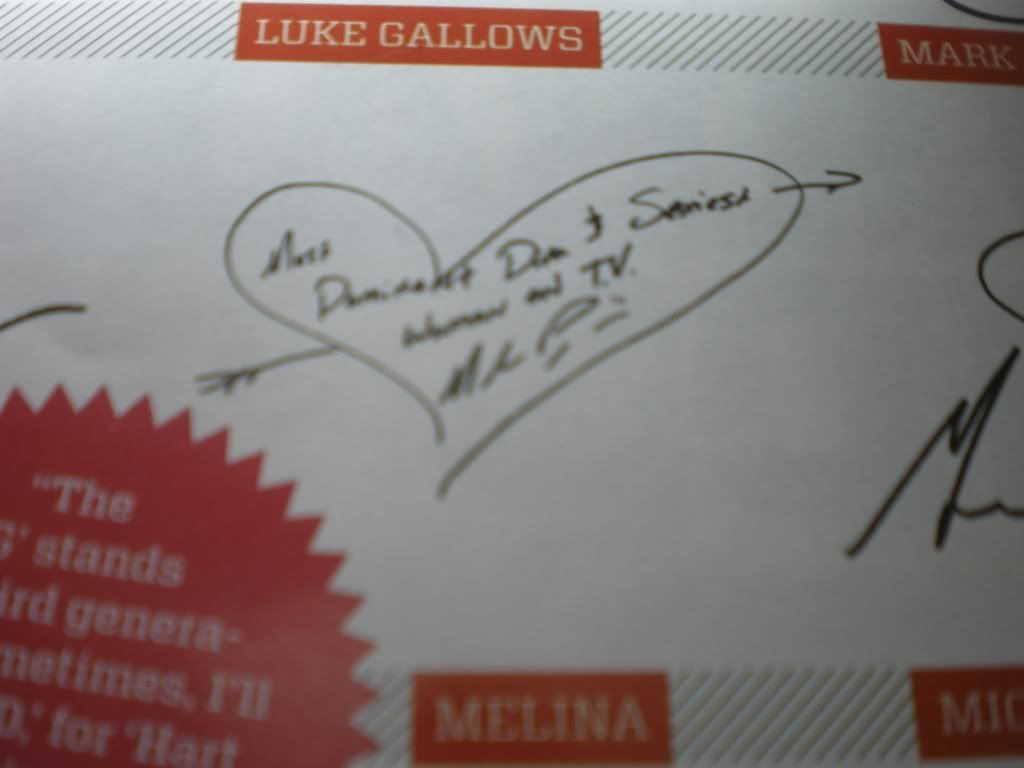 LUKE GALLOWS
MARK
Most
Dominant Dom &
woman on T.V.
"The
G' stands
ird genera-
metimes, I'll
D,' for 'Hart
MELINA
MIC